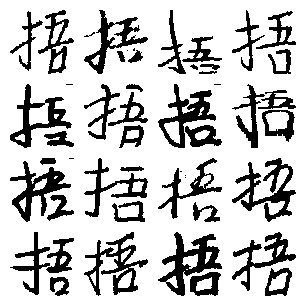 捂 捂 捂 捂
捂 捂 捂 捂
捂 捂 捂 捂
捂 捂 捂 捂